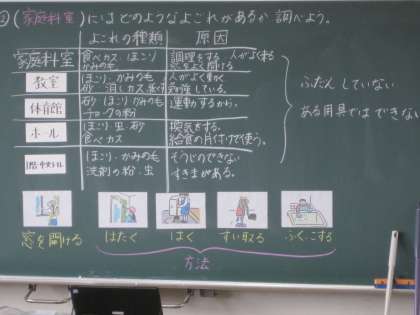 (家庭科室)にはどのようなよごれがあるか調べよう。
よごれの種類 原因
家庭科室 食べカス ほこり かみのも 調理をする 人がよく来る 窓をよく開ける
教室 ほこり・かみのも 砂・消しカス 人がよく動く
体育館 砂 ほこり かみのも チョークの粉 運動するから。
ホール ほこり 虫 砂 食べカス 換気をする。 給食の片付けで使う。
ほこり・かみのも 洗剤の粉・虫 そうじのできない すきまがある。
ふだん していない
ある用具では できない
窓を開ける はたく はく すい取る ふく・こする
方法